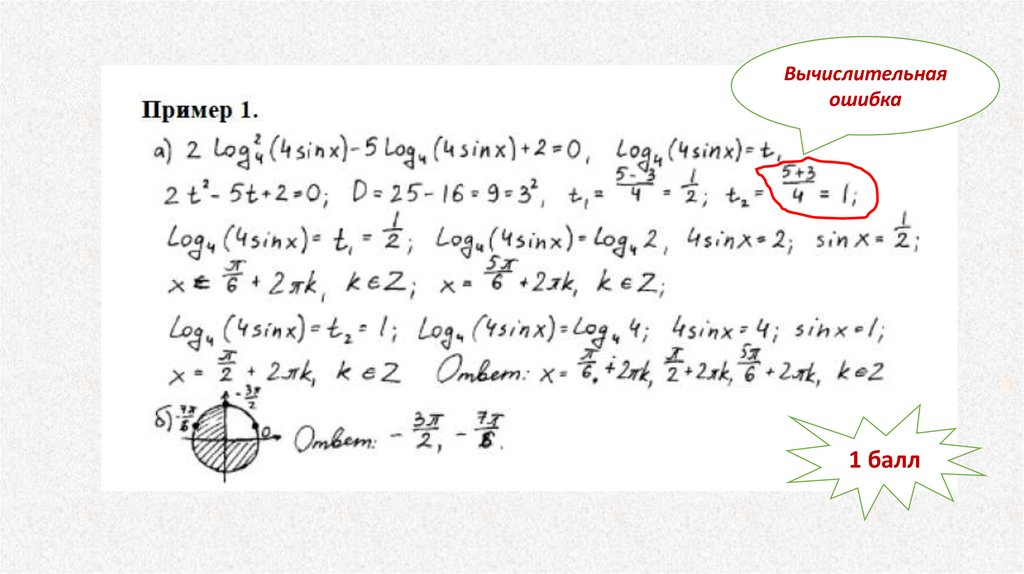 Вычислительная
ошибка
Пример 1.
а) 2 log₄²(4sinx)-5log₄(4sinx)+2=0, log₄(4sinx)=t,
2t²-5t+2=0; D=25-16=9=3², t₁=(5-3)/4=1/2; t₂=(5+3)/4=1;
log₄(4sinx)=t₁=1/2; log₄(4sinx)=log₄2, 4sinx=2; sinx=1/2;
x=π/6+2πk, k∈Z; x=5π/6+2πk, k∈Z;
log₄(4sinx)=t₂=1; log₄(4sinx)=log₄4; 4sinx=4; sinx=1;
x=π/2+2πk, k∈Z Ответ: x=π/6+2πk, π/2+2πk, 5π/6+2πk, k∈Z
б) -7π/6 -3π/2 0 Ответ: -3π/2, -7π/6.
1 балл